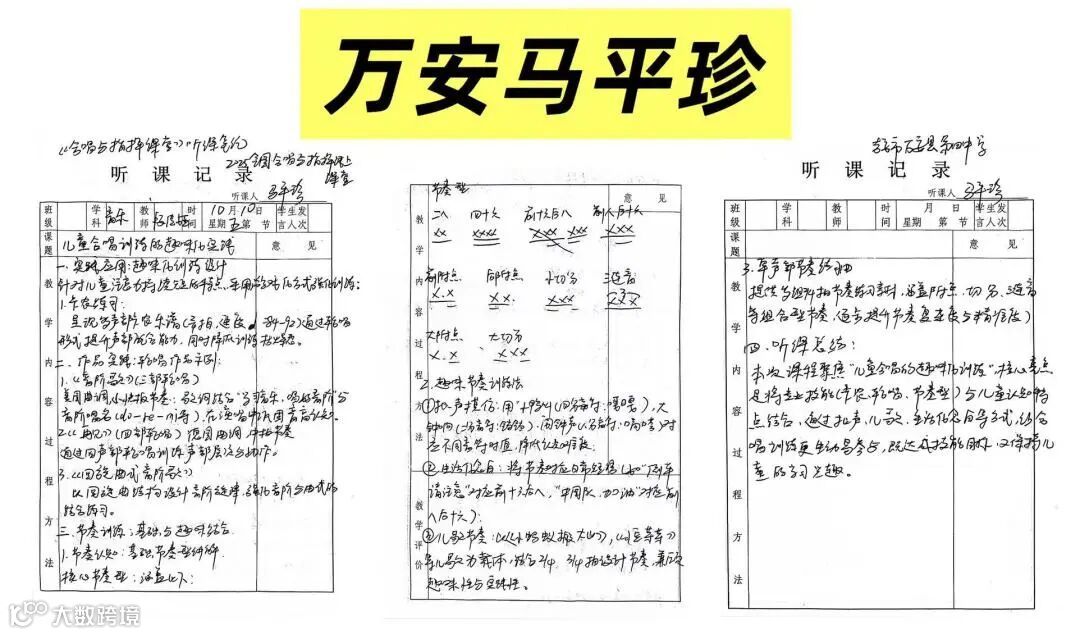 万安马平珍
《合唱与指挥课堂》听课笔记
2025全国合唱与指挥线上
课堂
听课记录
听课人 马平珍
班级 学科 音乐 教师 时间 10月10日 星期五 第 节 学生发言人次
课题 儿童合唱训练的趣味化实践 意见
教学内容过程方法
一.实践应用:趣味化训练设计
针对儿童注意力持续短的特点,采用游戏化方式强化训练:
1.卡农练习:
呈现多声部卡农乐谱(音拍、速度 84-92)通过轮唱
形式提升声部配合能力,同时降低训练枯燥感。
二.作品实践:轮唱作品示例
1.《音阶歌》(三部轮唱)
美国曲调,小快板节奏:歌词结合"学音乐,唱好音阶"与
音阶唱名(do-re-mi等),在演唱中巩固音高认知。
2. (四部轮唱) 德国曲调,中拍节奏
通过四声部轮唱训练声部层次与协作。
3.《回旋曲式音阶歌》
以回旋曲结构设计音阶旋律,强化音阶与曲式的
结合练习。
三.节奏训练:基础与趣味结合
1.节奏认知:基础节奏型讲解
核心节奏型:涵盖以下:
节奏型
意见
教学内容过程方法
二八 四十六 前十六后八 前八后十六
xx xxxx xxx xxx xxx
前附点 后附点 小切分 三连音
x.x xx. xxx xxx
大附点 大切分
x.x xxx
2.趣味节奏训练法
①拟声模仿:用"小鸭叫(四分音符:嘎嘎),大
钟响(二分音符: ),闹钟声(八分音符:嘀嗒)"对
应不同音符时值,降低认知难度。
②生活化念白:将节奏对应日常短语(如"列车
请注意"对应前十六后八,"中国队,加油"对应前
八后十六);
③儿歌节奏:以《小蚂蚁搬大山》,《 》
等儿歌为载体,结合2/4、3/4拍设计节奏,兼顾
趣味性与实践性。
教学评价
吉安市万安县第四中学
听课记录
听课人 马平珍
班级 学科 教师 时间 月 日 星期 第 节 学生发言人次
课题 意见
教学内容过程方法
3.单声部节奏练习曲
提供多组4/4拍节奏练习素材,涵盖附点、切分、三连音
等组合型节奏,逐步提升节奏复杂度与精准度)
四.听课总结:
本次课程聚焦"儿童合唱的趣味化训练",核心亮点
是将专业技能(卡农、轮唱、节奏型)与儿童认知特
点结合,通过拟声、儿歌、生活化念白等方式,让合
唱训练更生动易参与,既达成技能目标,又保持儿
童的学习兴趣。
大数跨境